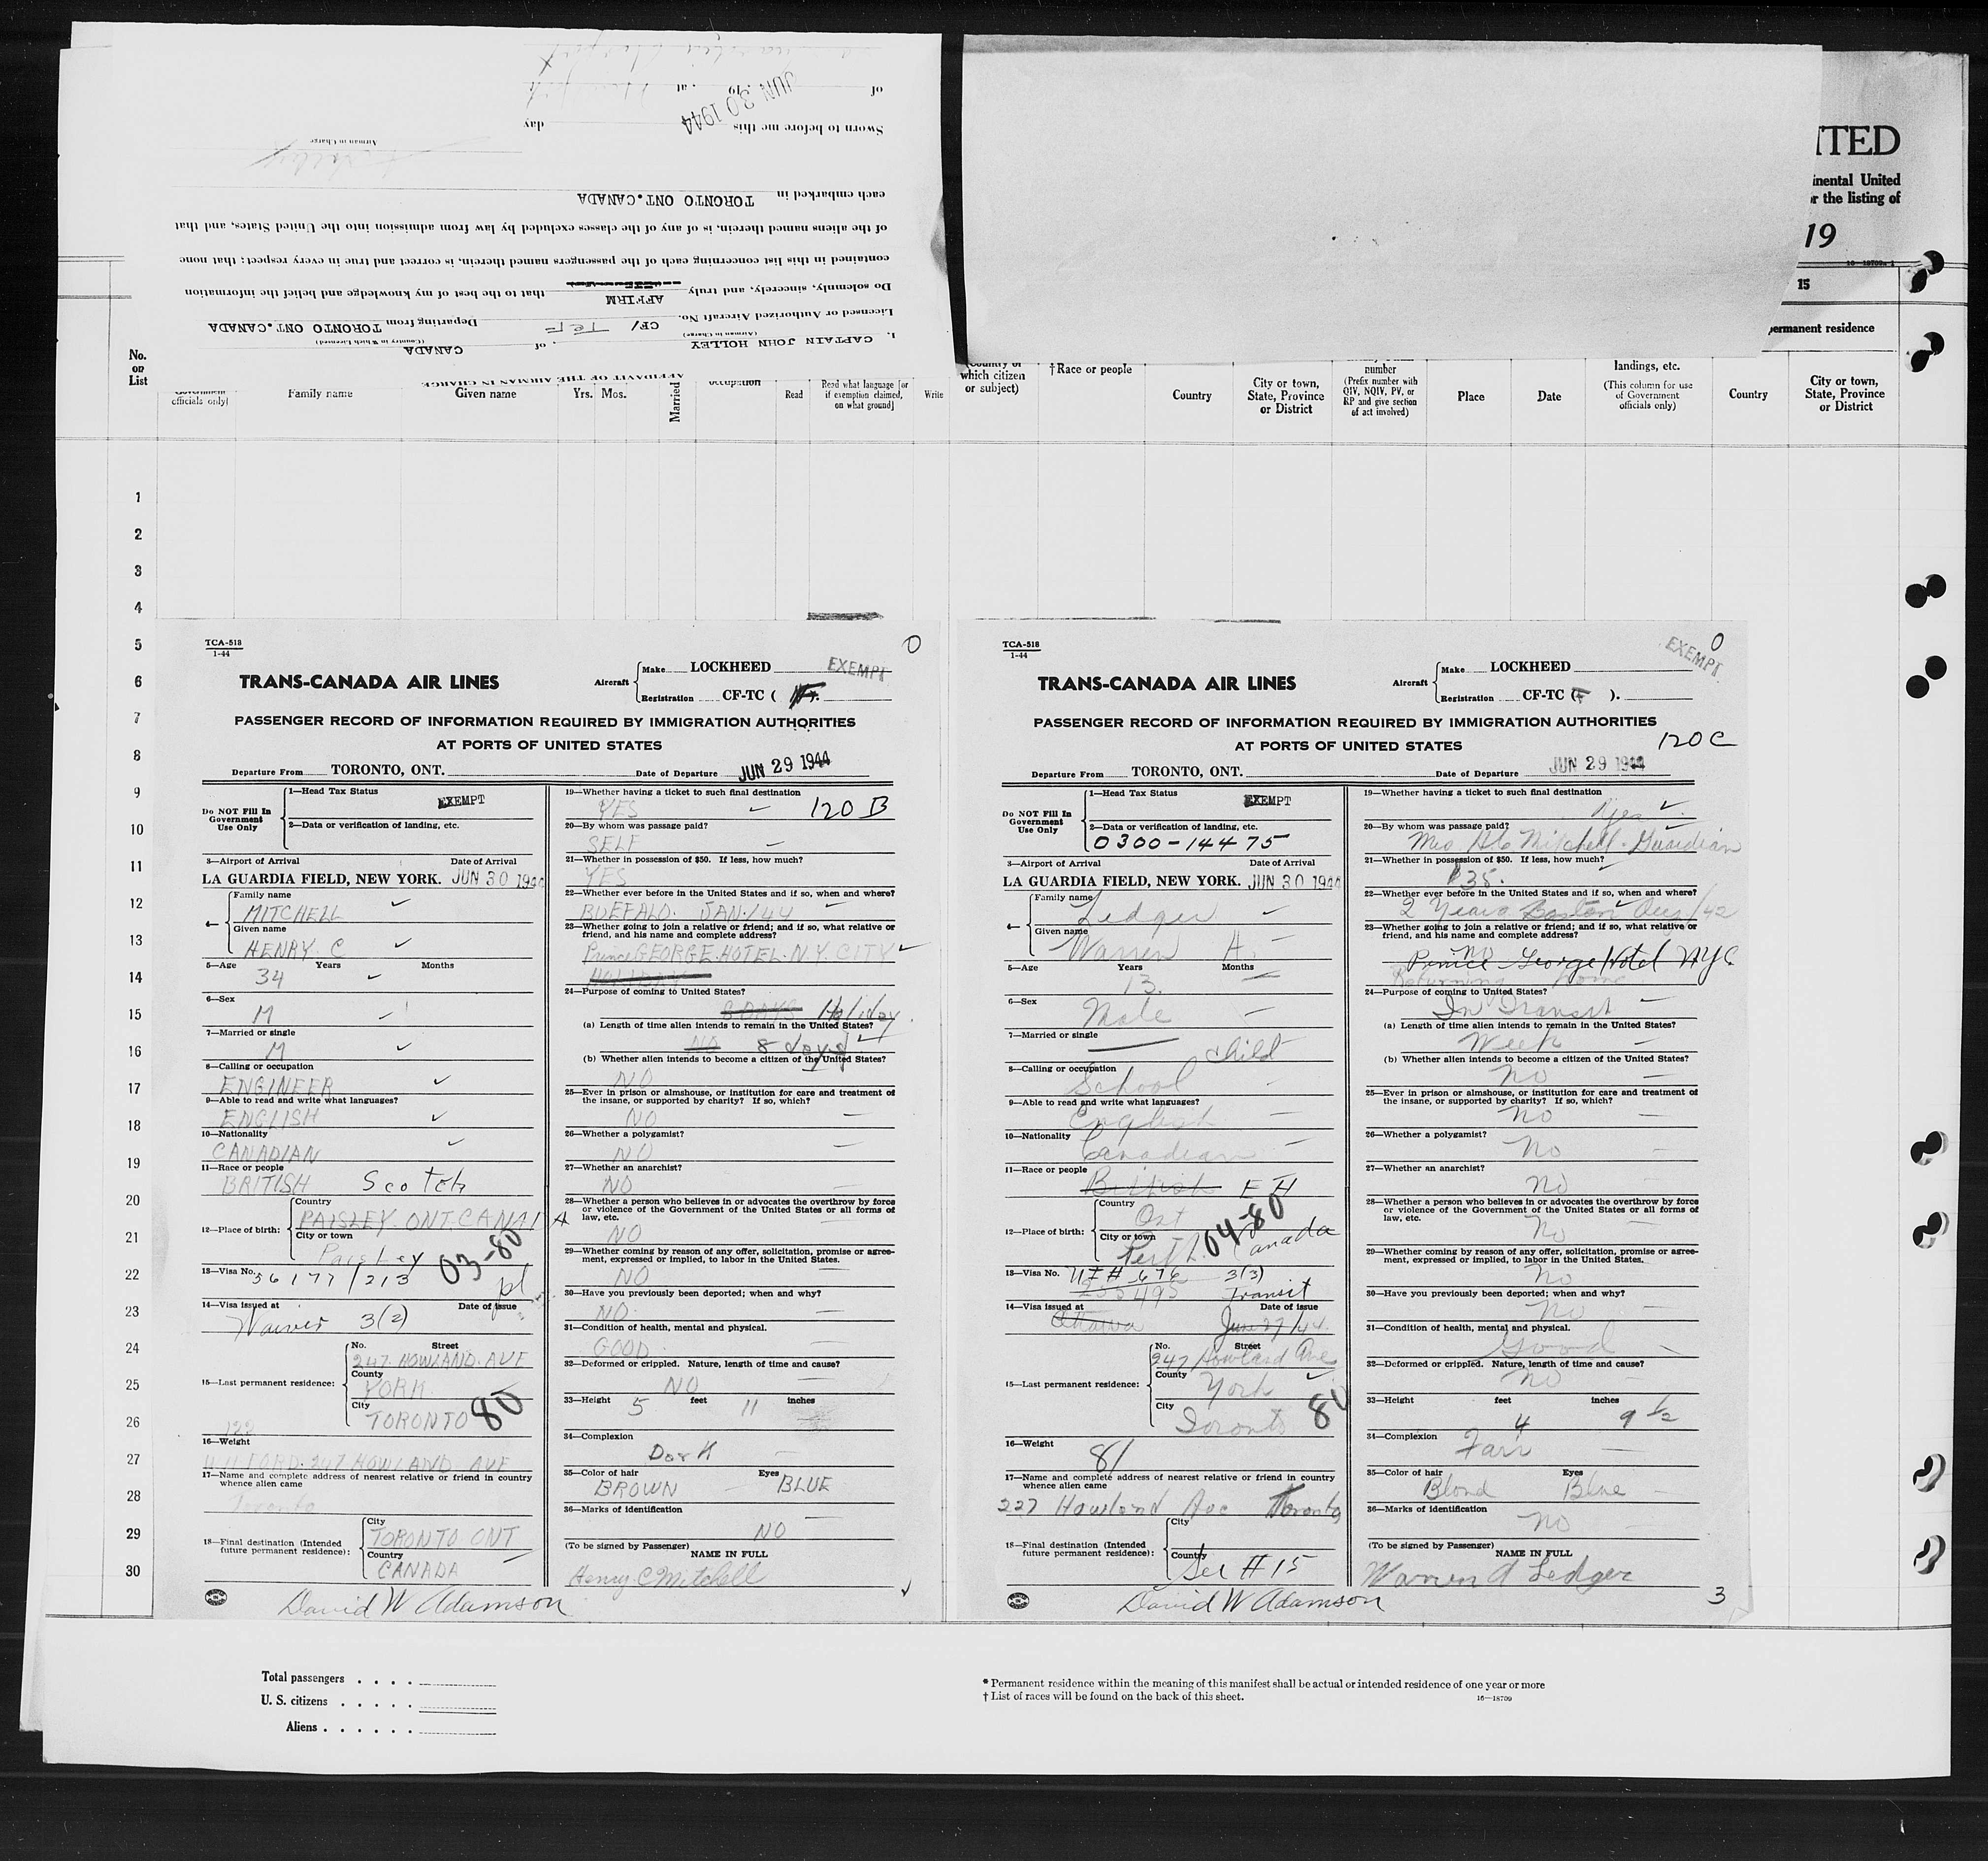 AFFIDAVIT OF THE AIRMAN IN CHARGE
I, CAPTAIN JOHN HOLLEY of CANADA
(Airman in Charge) (Country in Which Licensed)
Licensed or Authorized Aircraft No. CF/ TCF Departing from TORONTO ONT.CANADA
AFFIRM
Do solemnly, sincerely, and truly that to the best of my knowledge and belief the information
contained in this list concerning each of the passengers named therein, is correct and true in every respect; that none
of the aliens named therein, is of any of the classes excluded by law from admission into the United States, and that
each embarked in TORONTO ONT.CANADA
Airman in Charge
Sworn to before me this day
of 19 , at
JUN 30 1944
ITED
inental United
r the listing of
19
15
ermanent residence
No.
on
List
officials only)
Family name
Given name
Yrs. Mos.
Married
Read
Read what language [or
if exemption claimed,
on what ground]
Write
which citizen
or subject)
†Race or people
Country
City or town,
State, Province
or District
number
(Prefix number with
QIV, NQIV, PV, or
RP and give section
of act involved)
Place
Date
landings, etc.
(This column for use
of Government
officials only)
Country
City or town,
State, Province
or District
1
2
3
4
5
6
7
8
9
10
11
12
13
14
15
16
17
18
19
20
21
22
23
24
25
26
27
28
29
30
TCA-518
1-44
0
TRANS-CANADA AIR LINES
Aircraft Make LOCKHEED
EXEMPT
Registration CF-TC (
PASSENGER RECORD OF INFORMATION REQUIRED BY IMMIGRATION AUTHORITIES
AT PORTS OF UNITED STATES
Departure From TORONTO, ONT. Date of Departure JUN 29 1944
Do NOT Fill In
Government
Use Only
1—Head Tax Status EXEMPT
2—Data or verification of landing, etc.
3—Airport of Arrival Date of Arrival
LA GUARDIA FIELD, NEW YORK. JUN 30 1944
4— Family name
MITCHELL
Given name
HENRY C
5—Age Years Months
34
6—Sex
M
7—Married or single
M
8—Calling or occupation
ENGINEER
9—Able to read and write what languages?
ENGLISH
10—Nationality
CANADIAN
11—Race or people
BRITISH Scotch
12—Place of birth: Country
PAISLEY. ONT. CANADA
City or town
Paisley
03-80
13—Visa No. 56177/213
pl
14—Visa issued at Date of issue
Waiver 3(2)
15—Last permanent residence:
No. Street
247 HOWLAND AVE
County
YORK
City
TORONTO 80
122
16—Weight
247 HOWLAND AVE
17—Name and complete address of nearest relative or friend in country
whence alien came
Toronto
18—Final destination (Intended
future permanent residence):
City
TORONTO ONT
Country
CANADA
19—Whether having a ticket to such final destination
YES 120 B
20—By whom was passage paid?
SELF
21—Whether in possession of $50. If less, how much?
YES
22—Whether ever before in the United States and if so, when and where?
BUFFALO. JAN./44
23—Whether going to join a relative or friend; and if so, what relative or
friend, and his name and complete address?
Prince GEORGE. HOTEL. N.Y. CITY
HOLIDAY
24—Purpose of coming to United States?
8 DAYS Holiday
(a) Length of time alien intends to remain in the United States?
NO 8 days
(b) Whether alien intends to become a citizen of the United States?
NO
25—Ever in prison or almshouse, or institution for care and treatment of
the insane, or supported by charity? If so, which?
NO
26—Whether a polygamist?
NO
27—Whether an anarchist?
NO
28—Whether a person who believes in or advocates the overthrow by force
or violence of the Government of the United States or all forms of
law, etc.
NO
29—Whether coming by reason of any offer, solicitation, promise or agree-
ment, expressed or implied, to labor in the United States.
NO
30—Have you previously been deported; when and why?
NO.
31—Condition of health, mental and physical.
GOOD.
32—Deformed or crippled. Nature, length of time and cause?
NO
33—Height 5 feet 11 inches
34—Complexion
Dark
35—Color of hair Eyes
BROWN BLUE
36—Marks of identification
NO
(To be signed by Passenger) NAME IN FULL
Henry. C Mitchell
David W Adamson
TCA-518
1-44
0
EXEMPT
TRANS-CANADA AIR LINES
Aircraft Make LOCKHEED
Registration CF-TC (F ).
PASSENGER RECORD OF INFORMATION REQUIRED BY IMMIGRATION AUTHORITIES
AT PORTS OF UNITED STATES
120 C
Departure From TORONTO, ONT. Date of Departure JUN 29 1944
Do NOT Fill In
Government
Use Only
1—Head Tax Status EXEMPT
2—Data or verification of landing, etc.
0300-14475
3—Airport of Arrival Date of Arrival
LA GUARDIA FIELD, NEW YORK. JUN 30 1944
4— Family name
Ledger
Given name
Warren A.
5—Age Years Months
13.
6—Sex
Male
7—Married or single
child
8—Calling or occupation
School
9—Able to read and write what languages?
English
10—Nationality
Canadian
11—Race or people
British E H
12—Place of birth: Country
Ont
City or town
Perth Canada
04-80
13—Visa No. 676 3(3)
Transit
14—Visa issued at Date of issue
Ottawa June 27/44.
15—Last permanent residence:
No. Street
247 Howland Ave
County
York
City
Toronto 80
16—Weight 81
17—Name and complete address of nearest relative or friend in country
whence alien came
227 Howland Ave Toronto
18—Final destination (Intended
future permanent residence):
City
Country
See # 15
19—Whether having a ticket to such final destination
Yes
20—By whom was passage paid?
Mrs. H C Mitchell - Guardian
21—Whether in possession of $50. If less, how much?
$35.
22—Whether ever before in the United States and if so, when and where?
2 Years Boston Aug/42
23—Whether going to join a relative or friend; and if so, what relative or
friend, and his name and complete address?
No
Prince George Hotel NYC
Returning Home
24—Purpose of coming to United States?
In Transit
(a) Length of time alien intends to remain in the United States?
Week
(b) Whether alien intends to become a citizen of the United States?
No
25—Ever in prison or almshouse, or institution for care and treatment of
the insane, or supported by charity? If so, which?
No
26—Whether a polygamist?
No
27—Whether an anarchist?
No
28—Whether a person who believes in or advocates the overthrow by force
or violence of the Government of the United States or all forms of
law, etc.
No
29—Whether coming by reason of any offer, solicitation, promise or agree-
ment, expressed or implied, to labor in the United States.
No
30—Have you previously been deported; when and why?
No
31—Condition of health, mental and physical.
Good
32—Deformed or crippled. Nature, length of time and cause?
No
33—Height feet inches
4 9 1/2
34—Complexion
Fair
35—Color of hair Eyes
Blond Blue
36—Marks of identification
No
(To be signed by Passenger) NAME IN FULL
Warren A Ledger
David W Adamson
3
Total passengers . . . .
U. S. citizens . . . . .
Aliens . . . . . .
* Permanent residence within the meaning of this manifest shall be actual or intended residence of one year or more
† List of races will be found on the back of this sheet.
16—18709